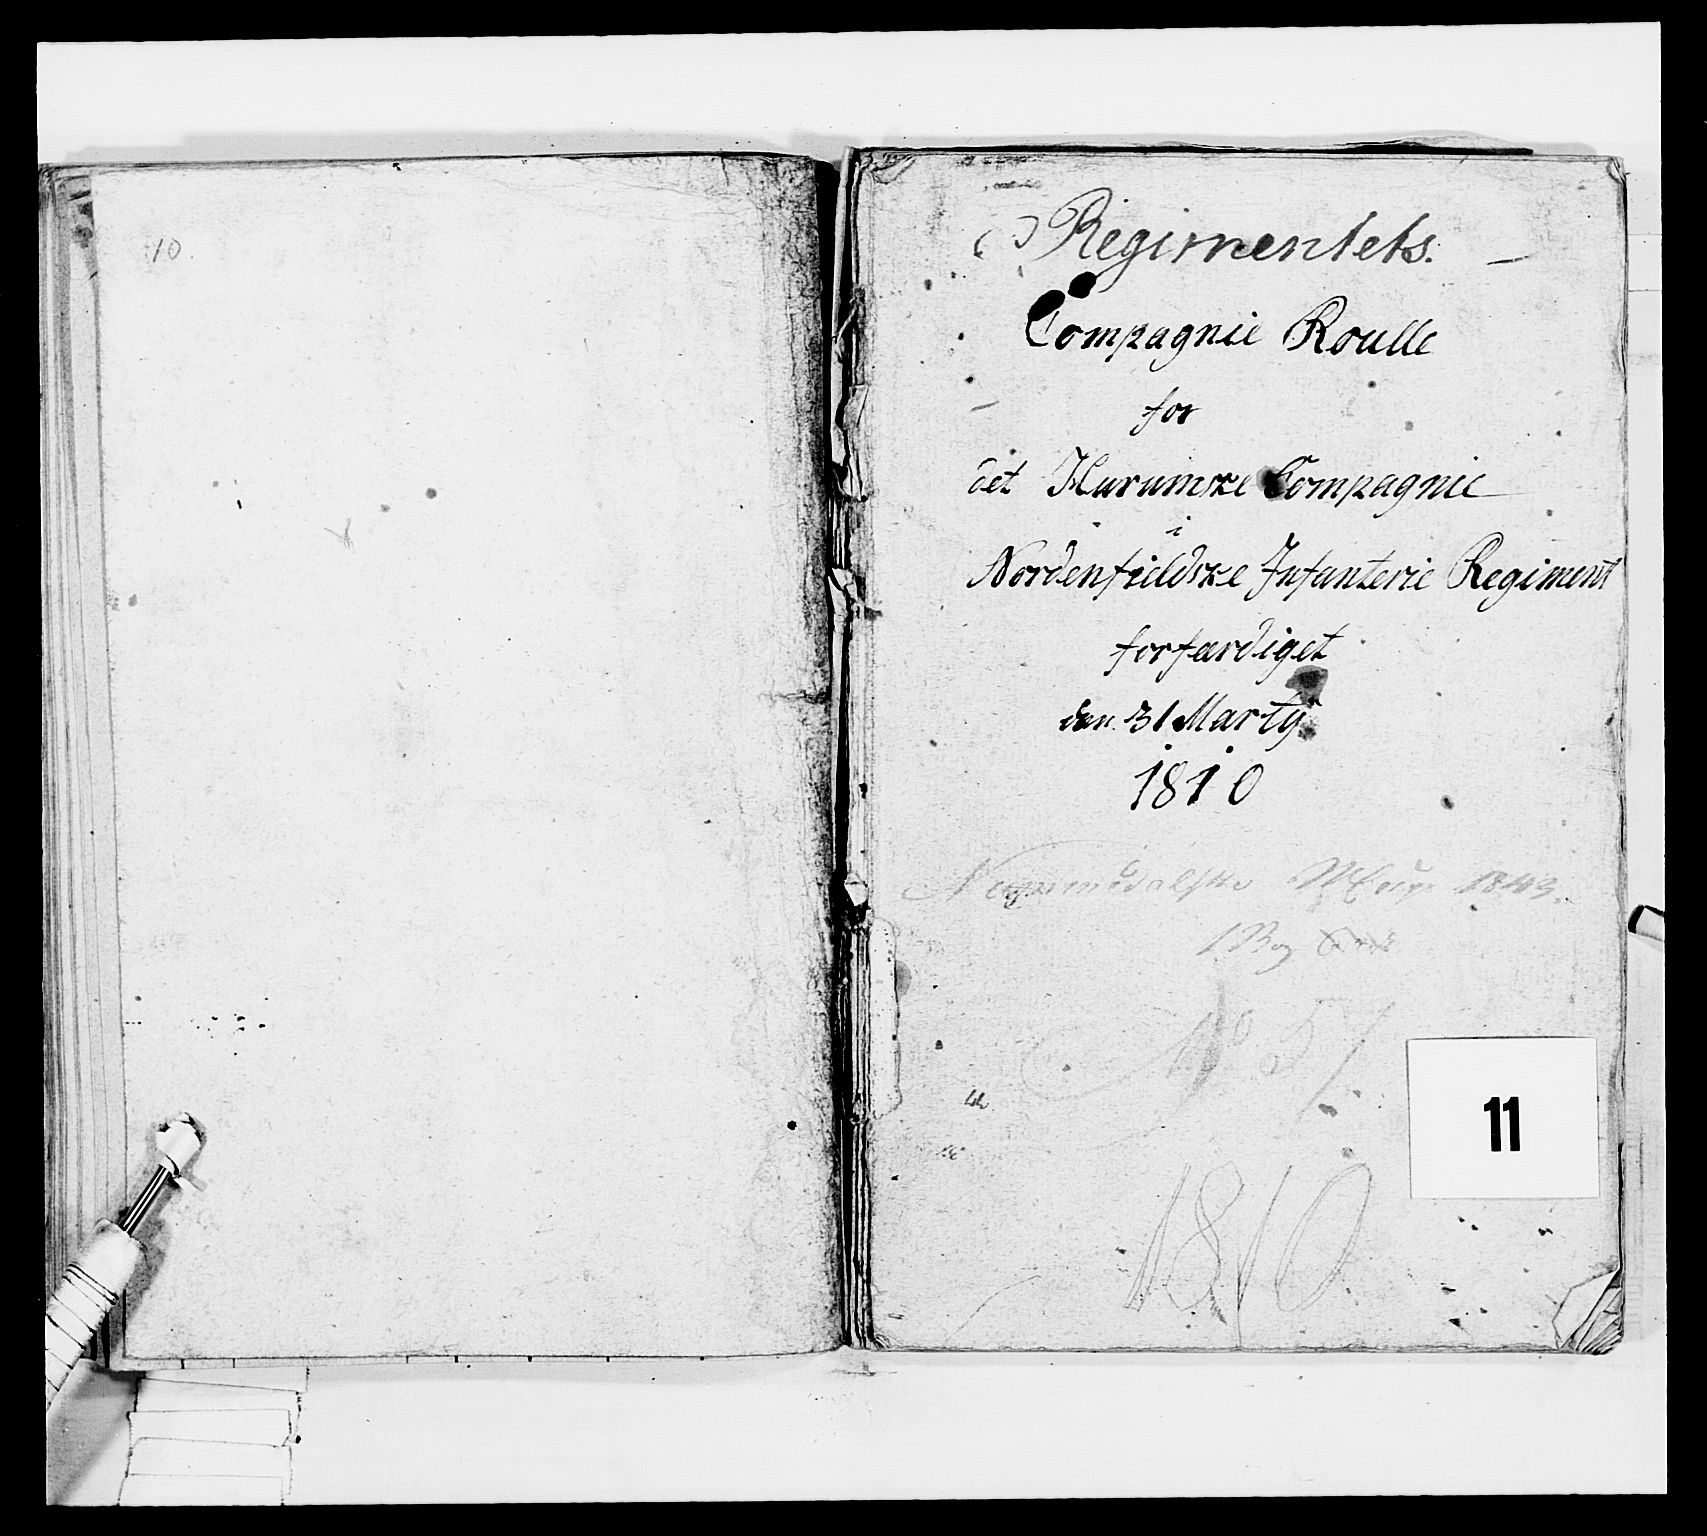 10.
Regimentets.
Compagnie Roulle
for
det Hurumske Compagnie
i
Nordenfieldske Infanterie Regiment
forfærdiget
den 31 Marty
1810
No 57
11
1810